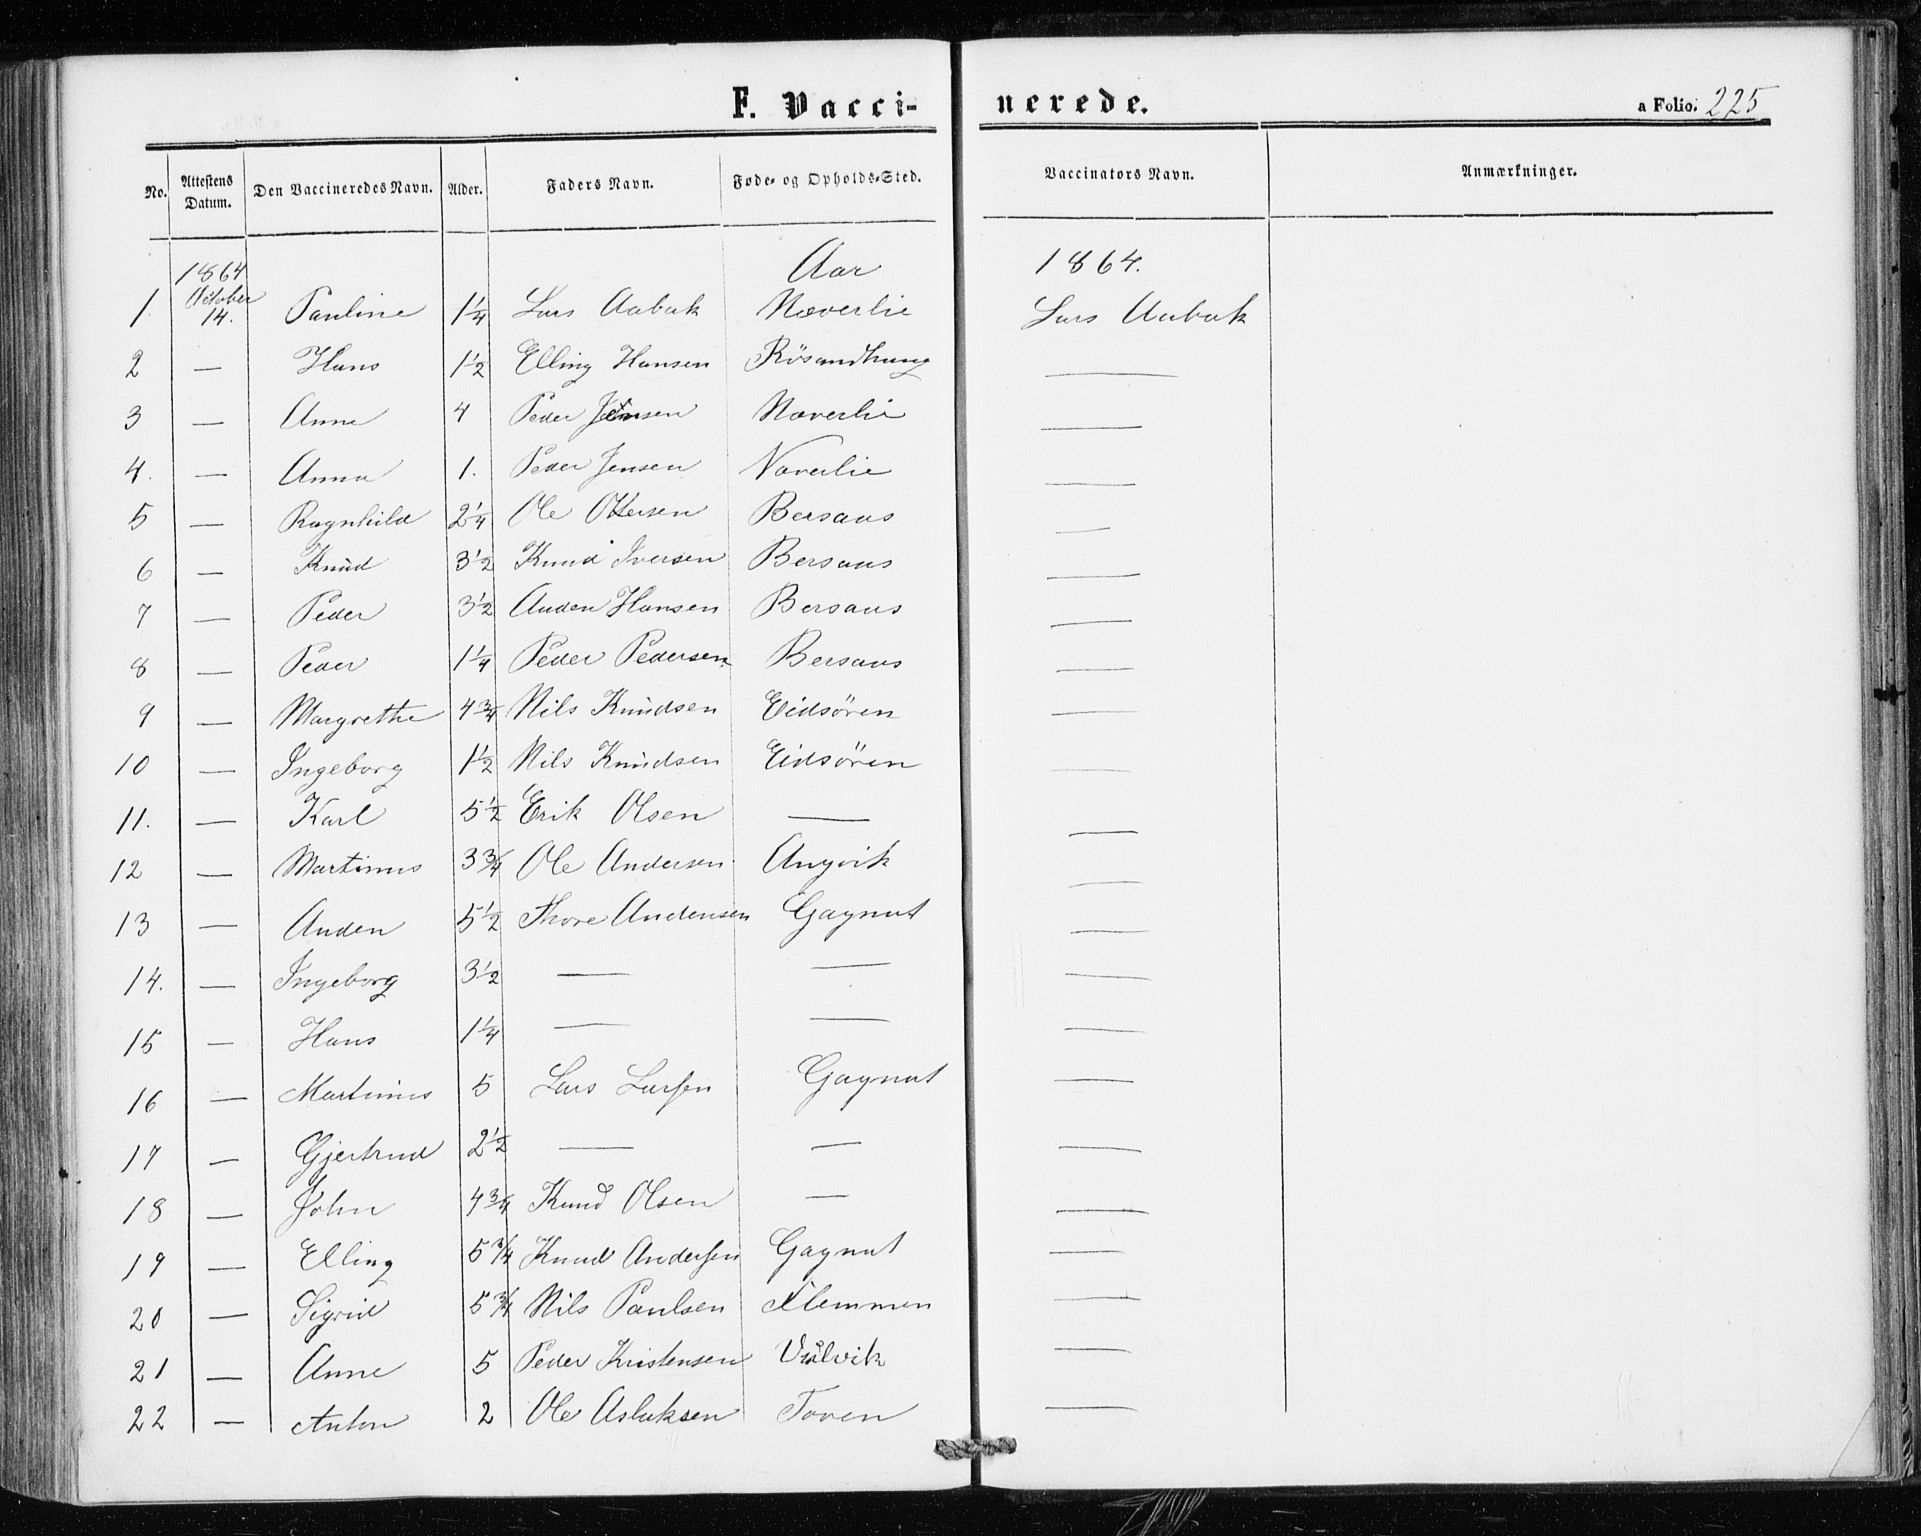 F. Vacci-nerede. a Folio. 225
No. Attestens Datum. Den Vaccineredes Navn. Alder. Faders Navn. Føde- og Opholds-Sted. Vaccinators Navn. Anmærkninger.
1864 Aar 1864.
1. October 14. Pauline 1 1/4 Lars Aabak Næverlie Lars Aabak
2 — Hans 1 1/2 Elling Hansen Rösandhaug —
3 — Anne 4 Peder Jensen Næverlie —
4. — Anna 1. Peder Jensen Næverlie —
5 — Ragnhild 2 1/4 Ole Ottersen Bersaas —
6 — Knud 3 1/2 Knud Iversen Bersaas —
7 — Peder 3 1/2 Anden Hansen Bersaas —
8 — Peder 1 1/4 Peder Pedersen Bersaas —
9 — Margrethe 4 3/4 Nils Knudsen Eidsören —
10 — Ingeborg 1 1/2 Nils Knudsen Eidsören —
11. — Karl 5 1/2 Erik Olsen — —
12 — Martinus 3 3/4 Ole Andersen Angvik —
13 — Anden 5 1/2 Thore Andensen Gagnat —
14. — Ingeborg 3 1/2 — — —
15 — Hans 1 1/4 — — —
16 — Martinus 5 Lars Larsen Gagnat —
17 — Gjertrud 2 1/2 — — —
18 — John 4 3/4 Knud Olsen — —
19 — Elling 5 3/4 Knud Andersen Gagnat —
20 — Sigrid 5 3/4 Nils Paulsen Flemmen —
21 — Anne 5 Peder Kristensen —
22 — Anton 2 Ole Aslaksen Toven —